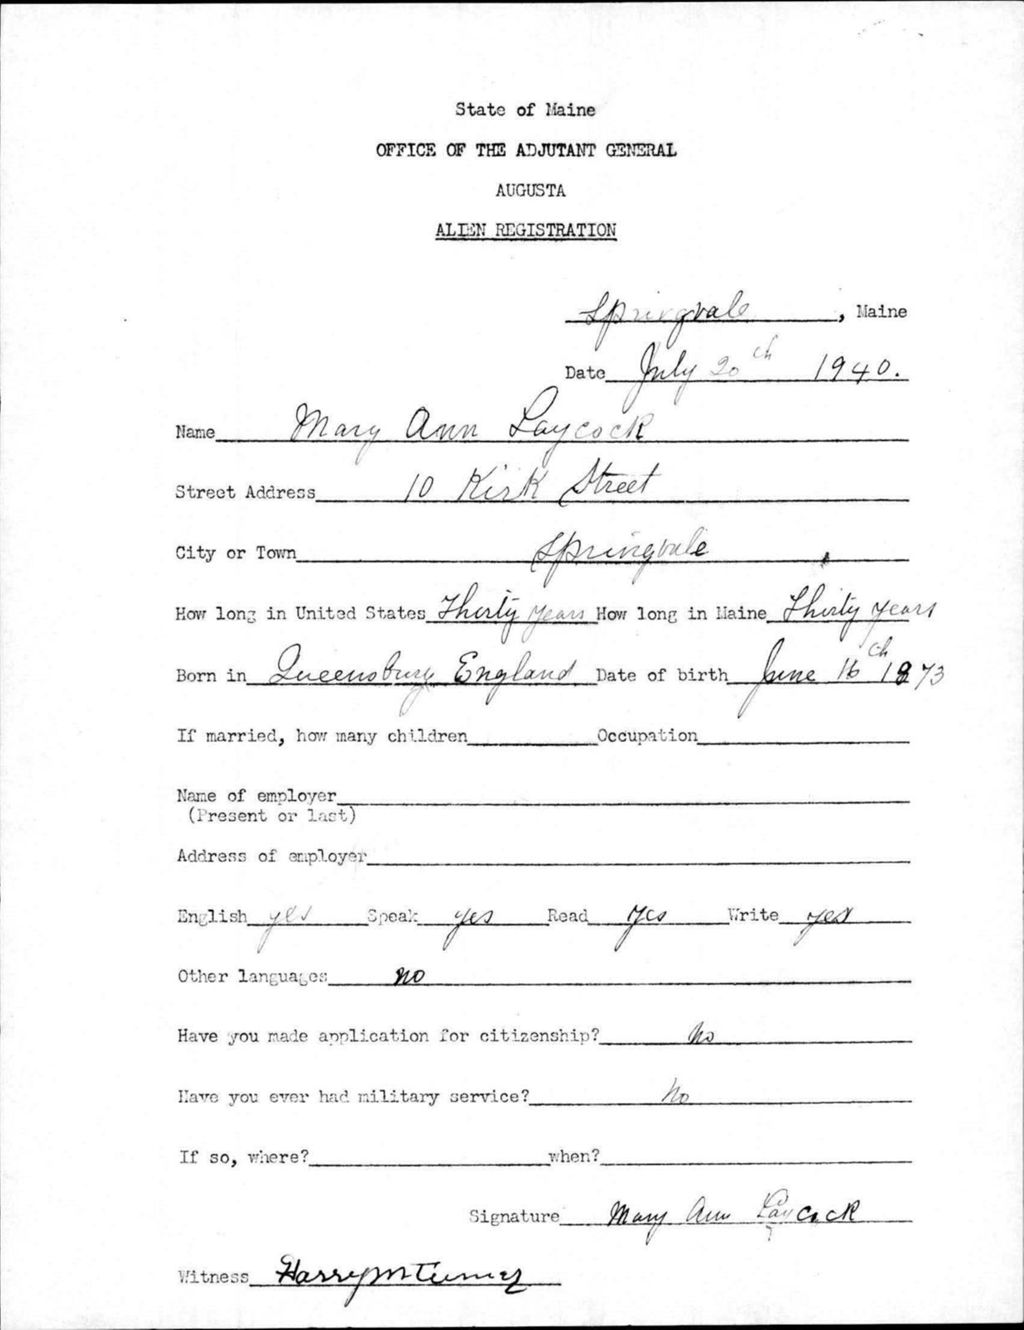 State of Maine
OFFICE OF THE ADJUTANT GENERAL
AUGUSTA
ALIEN REGISTRATION
Springvale, Maine
Date July 20th 1940.
Name Mary Ann Laycock
Street Address 10 Kirk Street
City or Town Springvale
How long in United States Thirty years How long in Maine Thirty years
Born in Queensbury England Date of birth June 16th 1873
If married, how many children Occupation
Name of employer
(Present or last)
Address of employer
English yes Speak yes Read yes Write yes
Other languages no
Have you made application for citizenship? No
Have you ever had military service? No
If so, where? when?
Signature Mary Ann Laycock
Witness Harry M